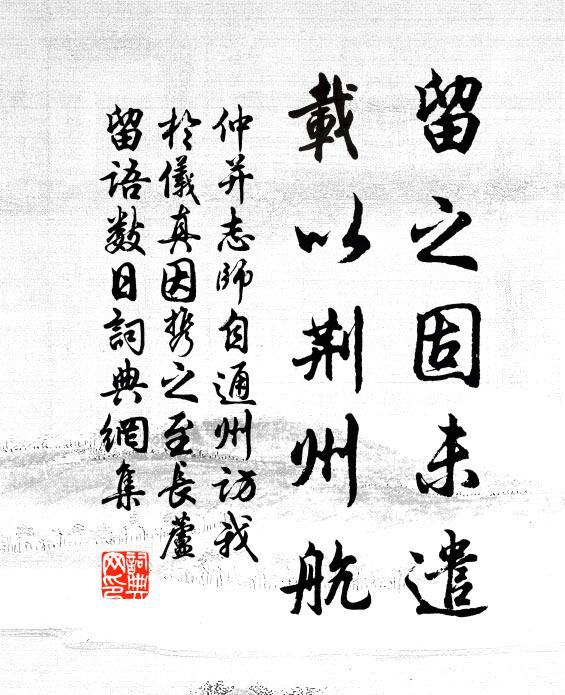 留之固未遣
載以荆州航
仲并志師自通州访我
於儀真因携之至長蘆
留语数日詞典網集
詞典
网印